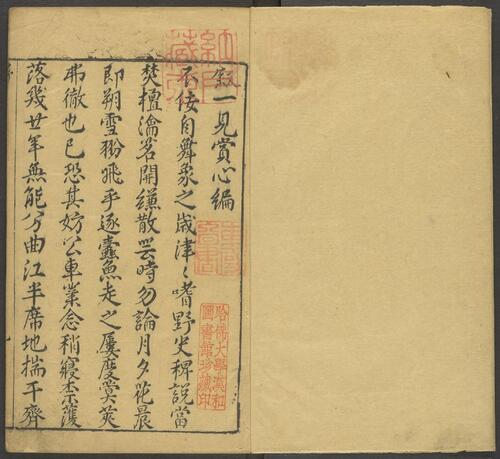 叙一見賞心編
不佞自舞象之歲津々嗜野史稗說當
焚檀瀹茗開縑散帙時勿論月夕花晨
即朔雪粉飛乎逐蠹魚走之屢度蓂莢
弗徹也已恐其妨公車業念稍寢柰濩
落幾廿年無能分曲江半席地揣干齊
哈佛大學漢和
圖書館珍藏印